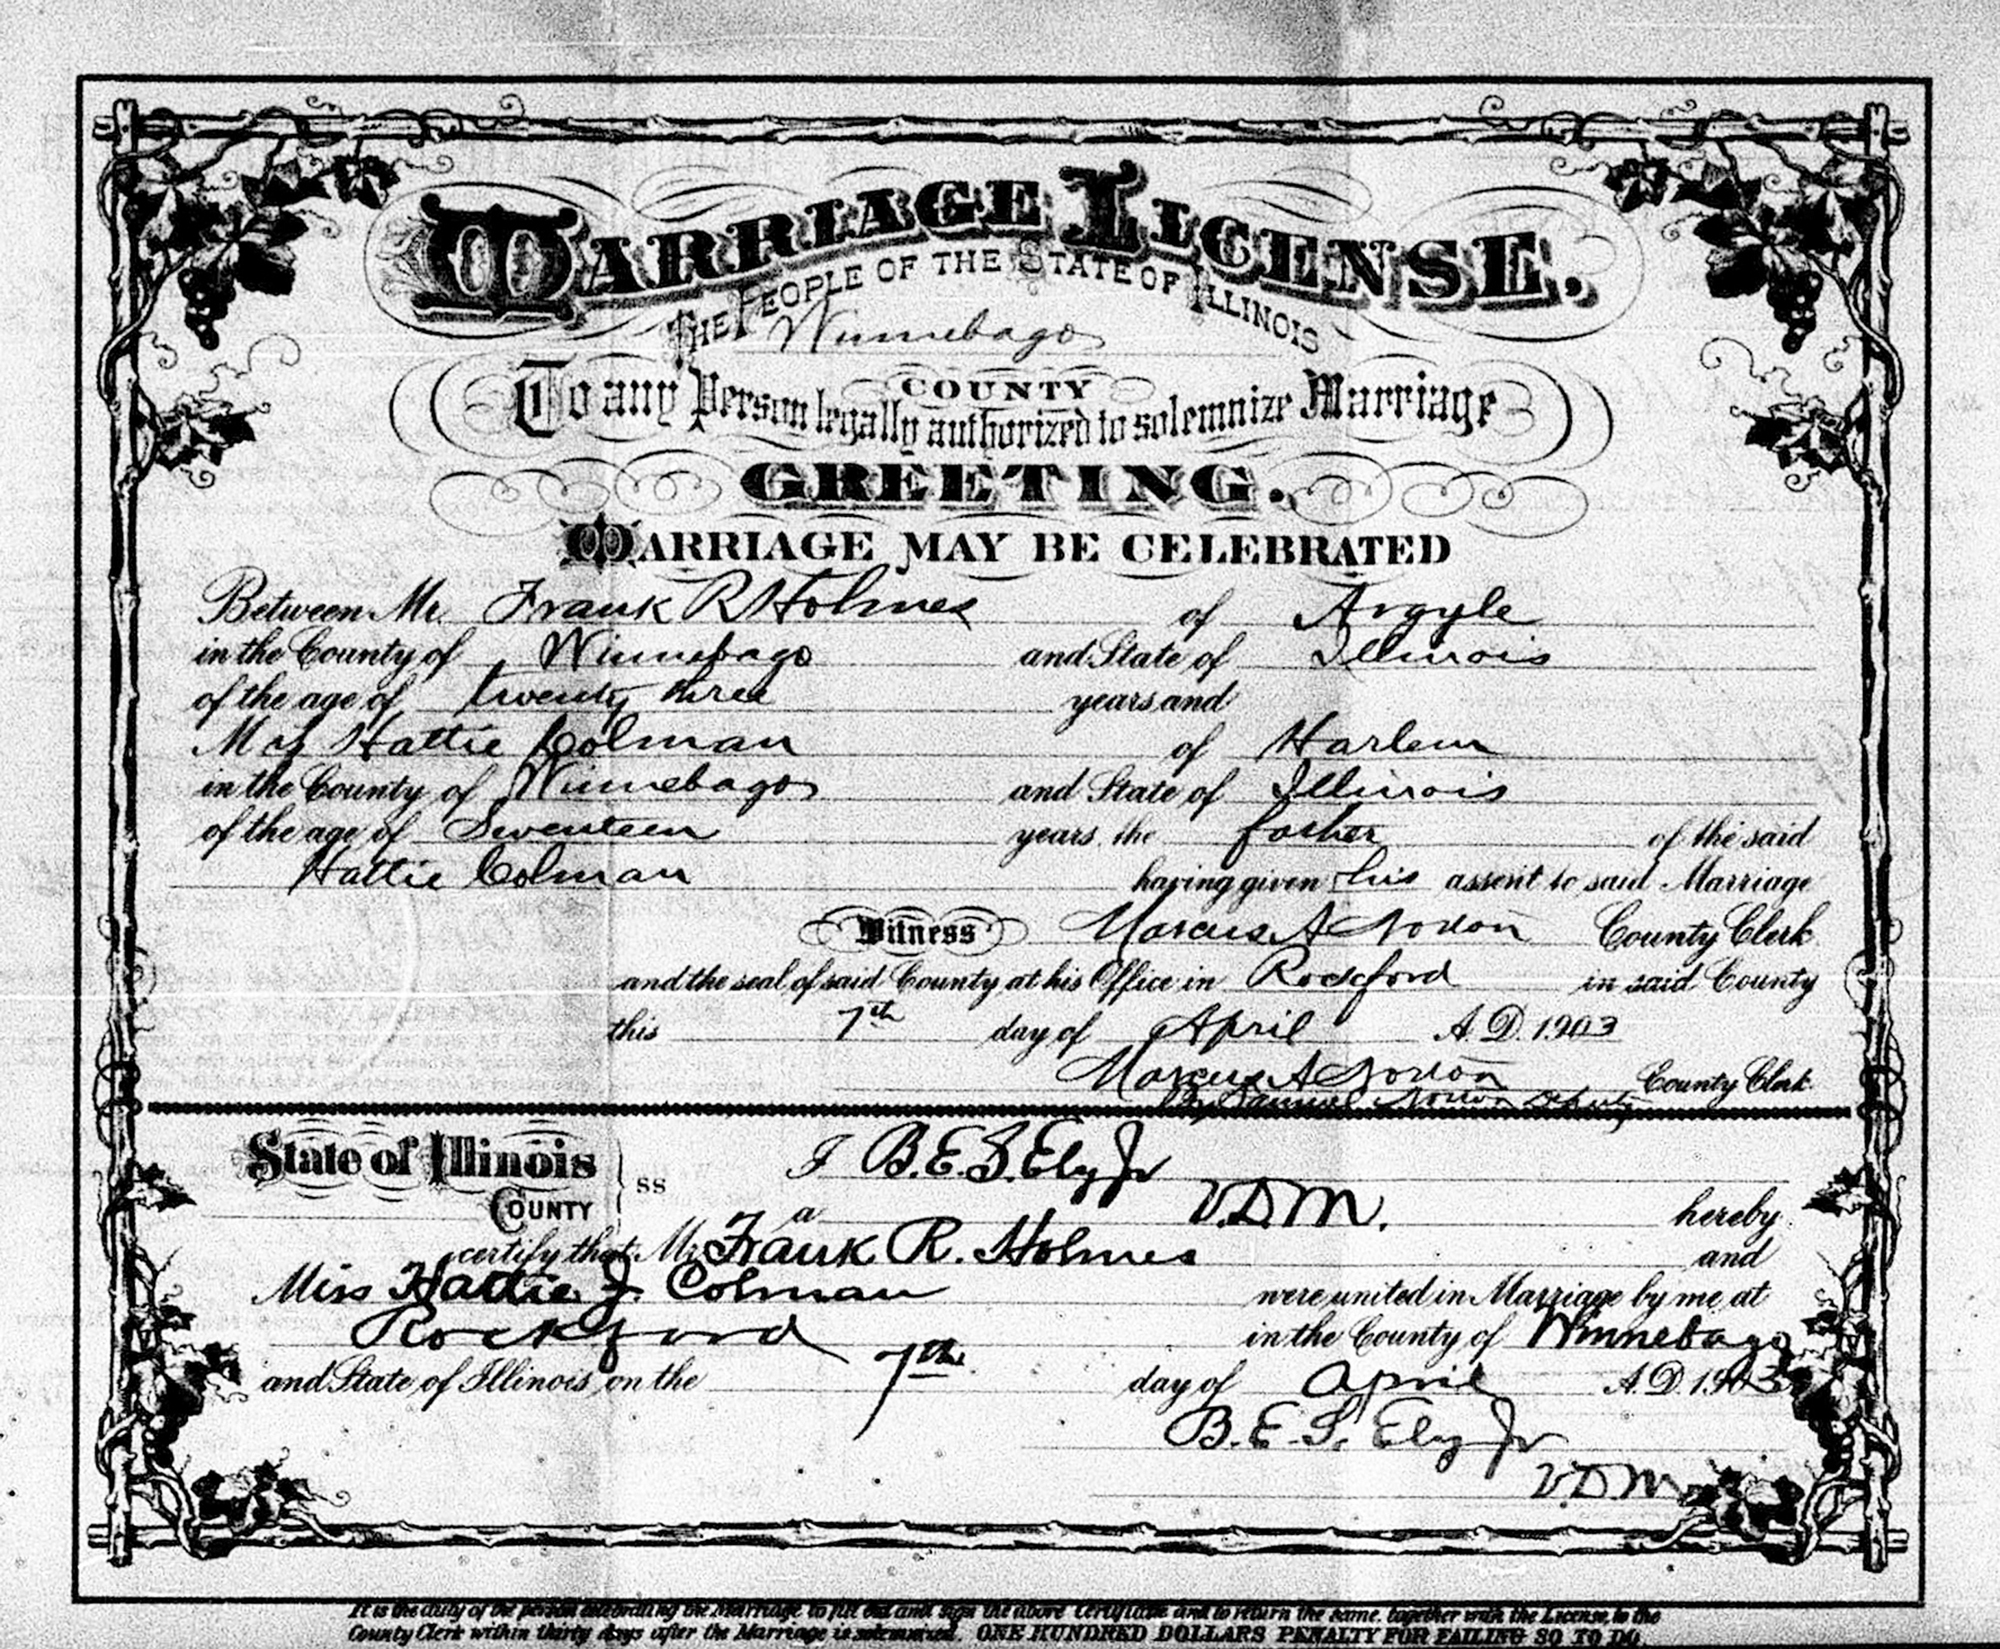 MARRIAGE LICENSE.
THE PEOPLE OF THE STATE OF ILLINOIS
Winnebago
COUNTY
To any Person legally authorized to solemnize Marriage
GREETING.
MARRIAGE MAY BE CELEBRATED
Between Mr. Frank R Holmes of Argyle
in the County of Winnebago and State of Illinois
of the age of twenty three years and
Hattie Colman of Harlem
in the County of Winnebago and State of Illinois
of the age of Seventeen years the father of the said
Hattie Colman having given his assent to said Marriage
Witness Marcus A Norton County Clerk
and the seal of said County at his Office in Rockford in said County
this 7th day of April A.D. 1903
Marcus A Norton County Clerk
By Samuel Norton Deputy
State of Illinois ss I B.E.S. Ely Jr
COUNTY a V.D.M. hereby
certify that Mr Frank R. Holmes and
Miss Hattie J. Colman were united in Marriage by me at
Rockford in the County of Winnebago
and State of Illinois on the 7th day of April A.D. 1903
B.E.S. Ely Jr
V.D.M
It is the duty of the person celebrating the Marriage to fill out and sign the above Certificate and to return the same, together with the License, to the
County Clerk within thirty days after the Marriage is solemnized. ONE HUNDRED DOLLARS PENALTY FOR FAILING SO TO DO